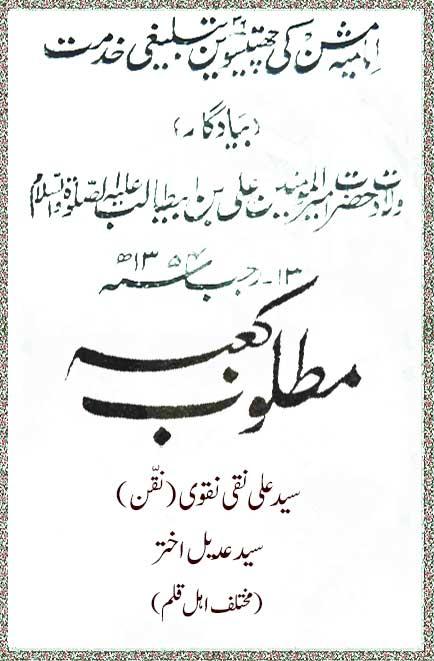 امامیہ مشن کی چھتیسویں تبلیغی خدمت
(بیادگار)
ولادت حضرت امیر المومنین علی بن ابیطالب علیہ الصلوٰۃ والسلام
۱۳۔رجب سنہ ۱۳۵۴ھ
مطلوب کعبہ
سید علی نقی نقوی (نقّن)
سید عدیل اختر
(مختلف اہل قلم)